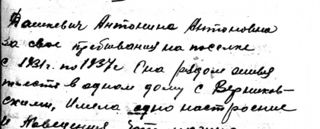 Дашкевич Антонина Антоновна
за свое пребывания на поселке
с 1931г. по 1937г. Она рядом
в одном дому с Верников-
скими, Имела одно настроение
и Поведения